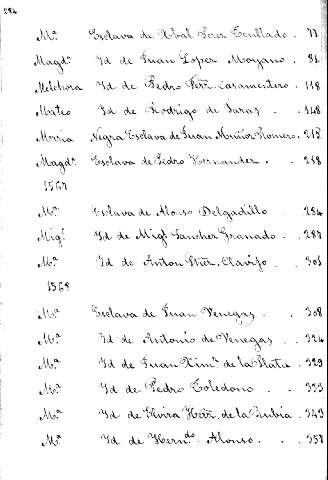 284
M.ª Esclava de Abal Perez Collado . 77
Magd.ª Id de Juan Lopez Moyano . 81
Melchora Id de Pedro Ferr.z Casamentero . 118
Mateo Id de Rodrigo de Jaras . 148
Maria Negra Esclava de Juan Muñoz Romero . 212
Magd.ª Esclava de Pedro Hernandez . . 218
1567
M.ª Esclava de Alonso Delgadillo . 284
Mig.l Id de Mig.l Sanchez Granado . . 287
M.ª Id de Anton Clavijo . . 301
1568
M.ª Esclava de Juan Venegas . . . 308
M.ª Id de Antonio de Venegas . . . 324
M.ª Id de Juan Xim.z de la Plata . . 329
M.ª Id de Pedro Toledano . . . 333
M.ª Id de Elvira Herr.z de la Rubia . 343
M.ª Id de Hern.do Alonso . . . 358